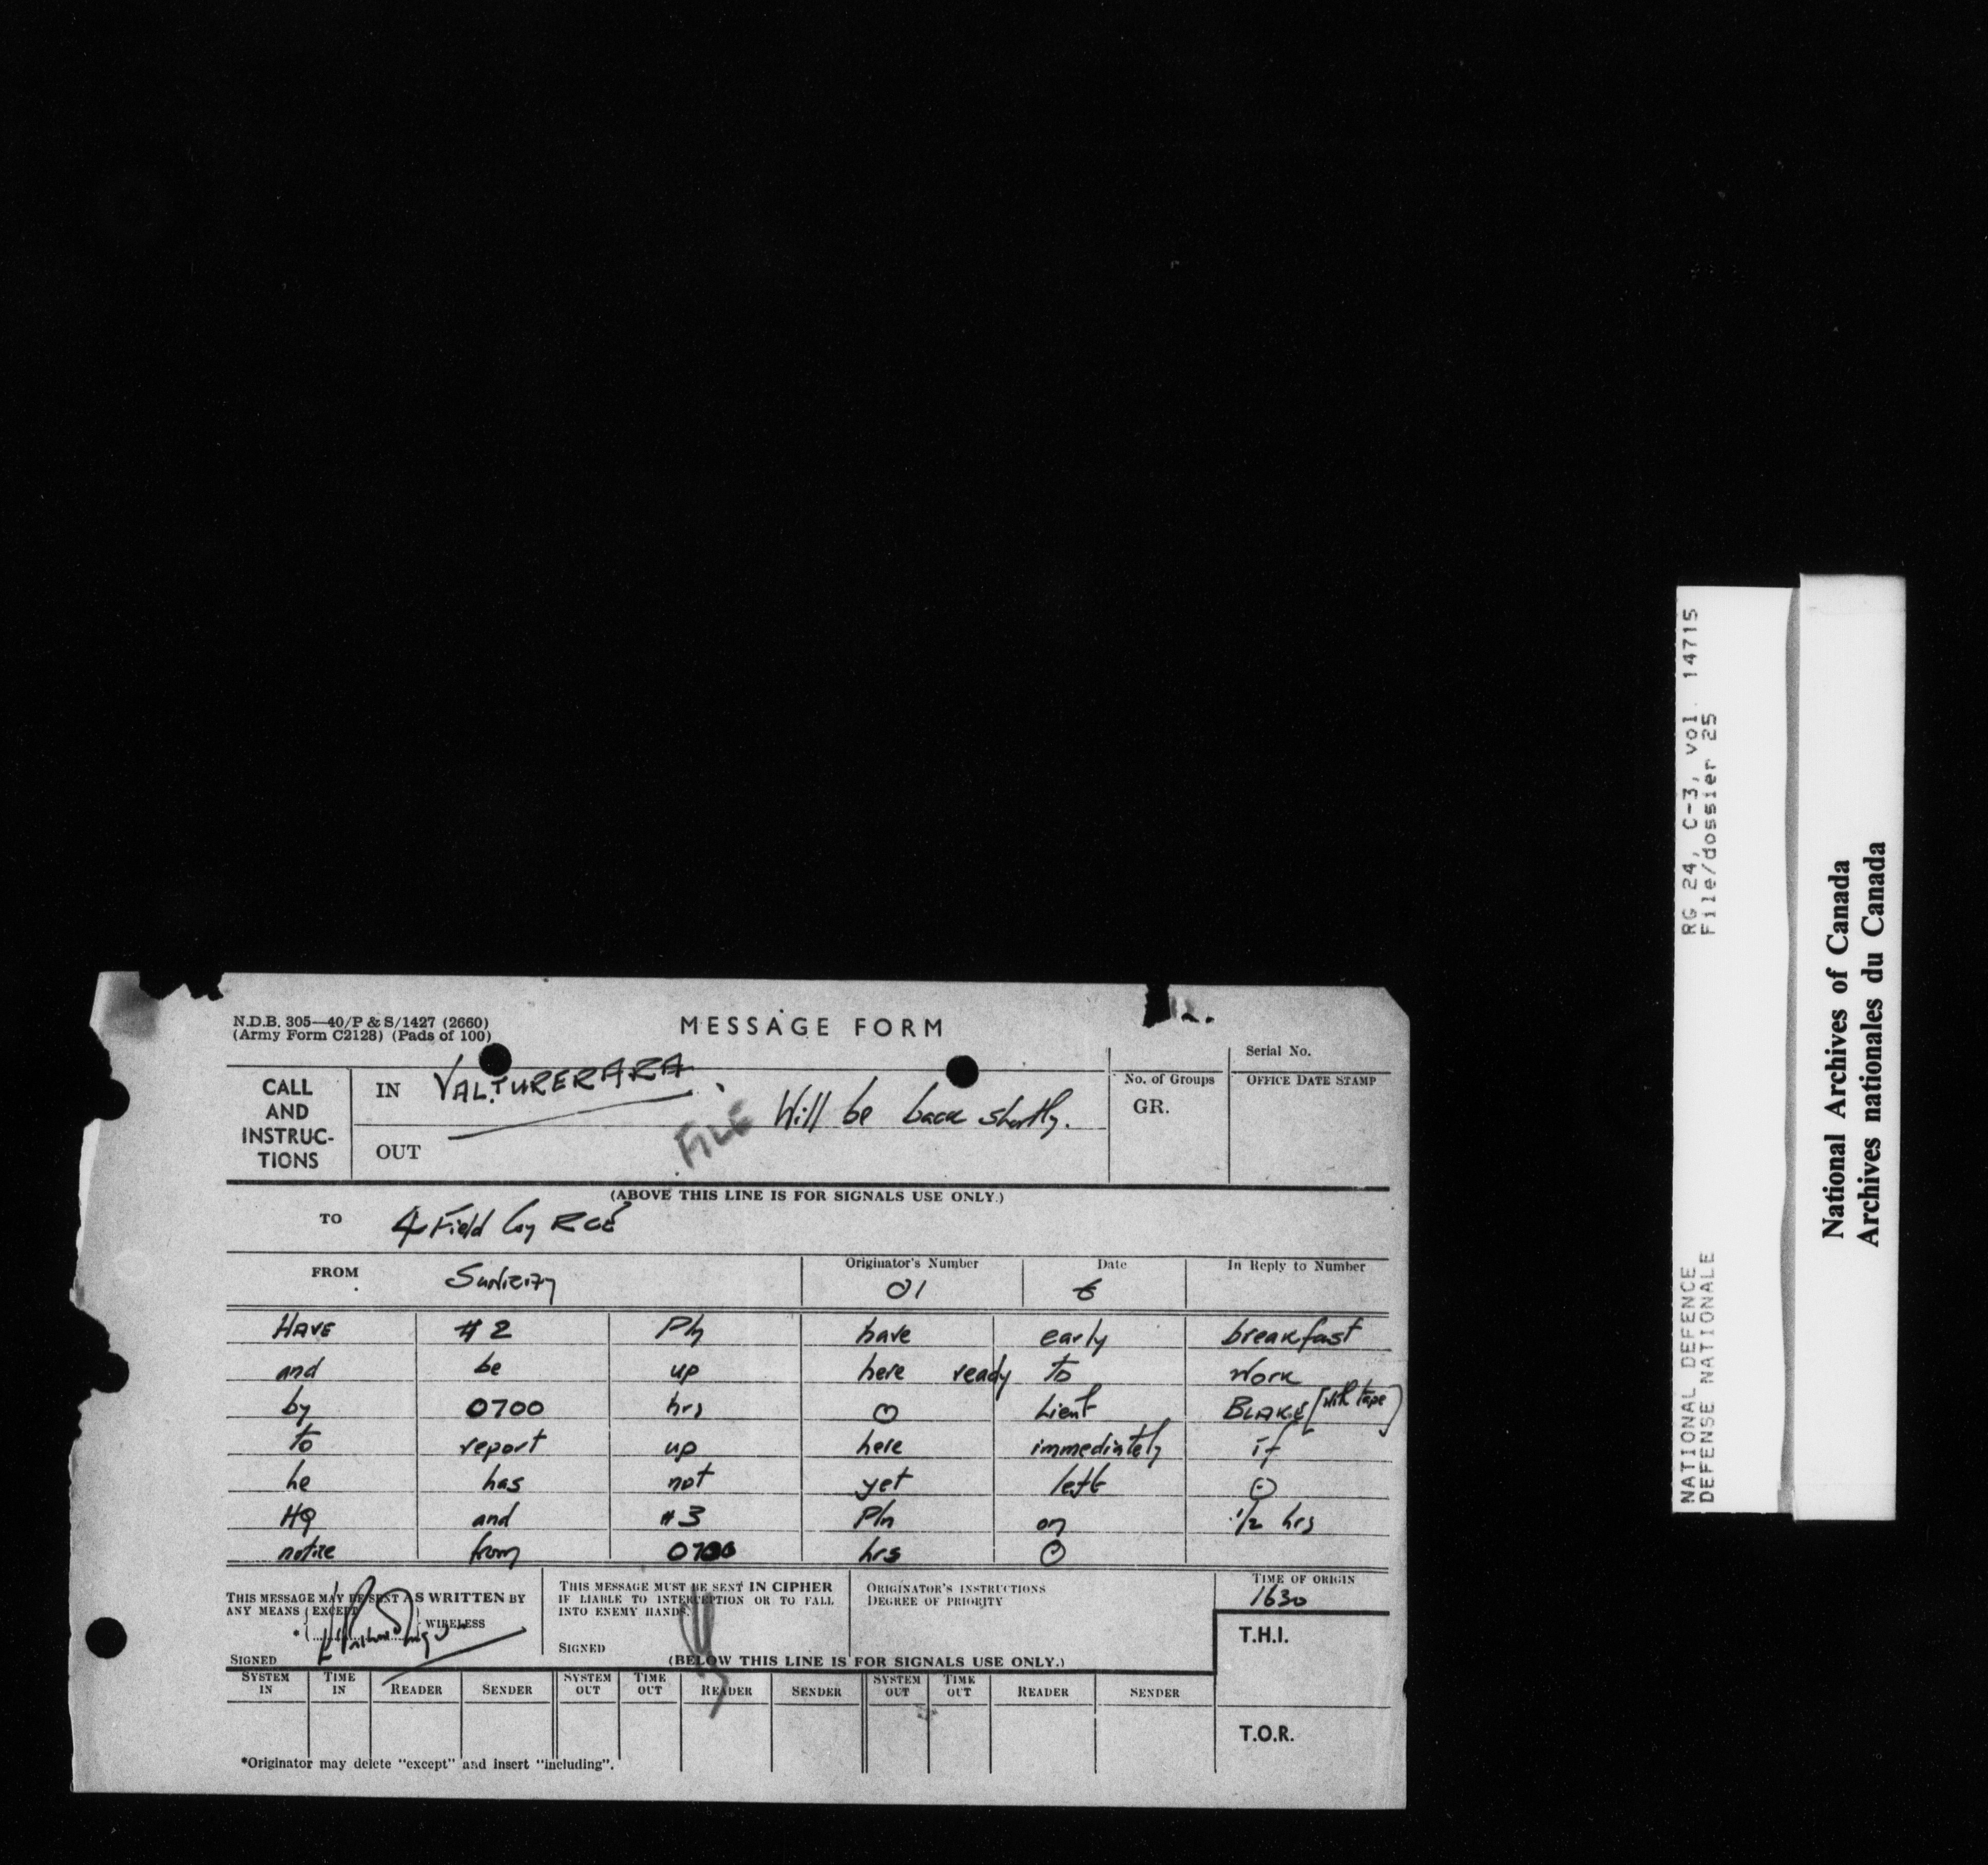 N.D.B. 305—40/P & S/1427 (2660)
(Army Form C2128) (Pads of 100)
MESSAGE FORM
12.
Serial No.
CALL AND INSTRUC-TIONS
IN VALTURERARA
FILE Will be back shortly.
OUT
No. of Groups
GR.
OFFICE DATE STAMP
(ABOVE THIS LINE IS FOR SIGNALS USE ONLY.)
TO 4 Field Coy RCE
FROM
Originator's Number 01
Date 6
In Reply to Number
HAVE #2 Pln have early breakfast
and be up here ready to work
by 0700 hrs ⊙ Lieut BLAKE [with tape]
to report up here immediately if
he has not yet left ⊙
HQ and #3 Pln on 1/2 hrs
notice from 0700 hrs ⊙
THIS MESSAGE MAY BE SENT AS WRITTEN BY
ANY MEANS (EXCEPT
* WIRELESS
SIGNED
THIS MESSAGE MUST BE SENT IN CIPHER
IF LIABLE TO INTERCEPTION OR TO FALL
INTO ENEMY HANDS.
SIGNED
ORIGINATOR'S INSTRUCTIONS
DEGREE OF PRIORITY
TIME OF ORIGIN
1630
T.H.I.
(BELOW THIS LINE IS FOR SIGNALS USE ONLY.)
SYSTEM IN TIME IN READER SENDER SYSTEM OUT TIME OUT READER SENDER SYSTEM OUT TIME OUT READER SENDER
T.O.R.
*Originator may delete "except" and insert "including".
RG 24, C-3, vol. 14715
File/dossier 25
NATIONAL DEFENCE
DEFENSE NATIONALE
National Archives of Canada
Archives nationales du Canada